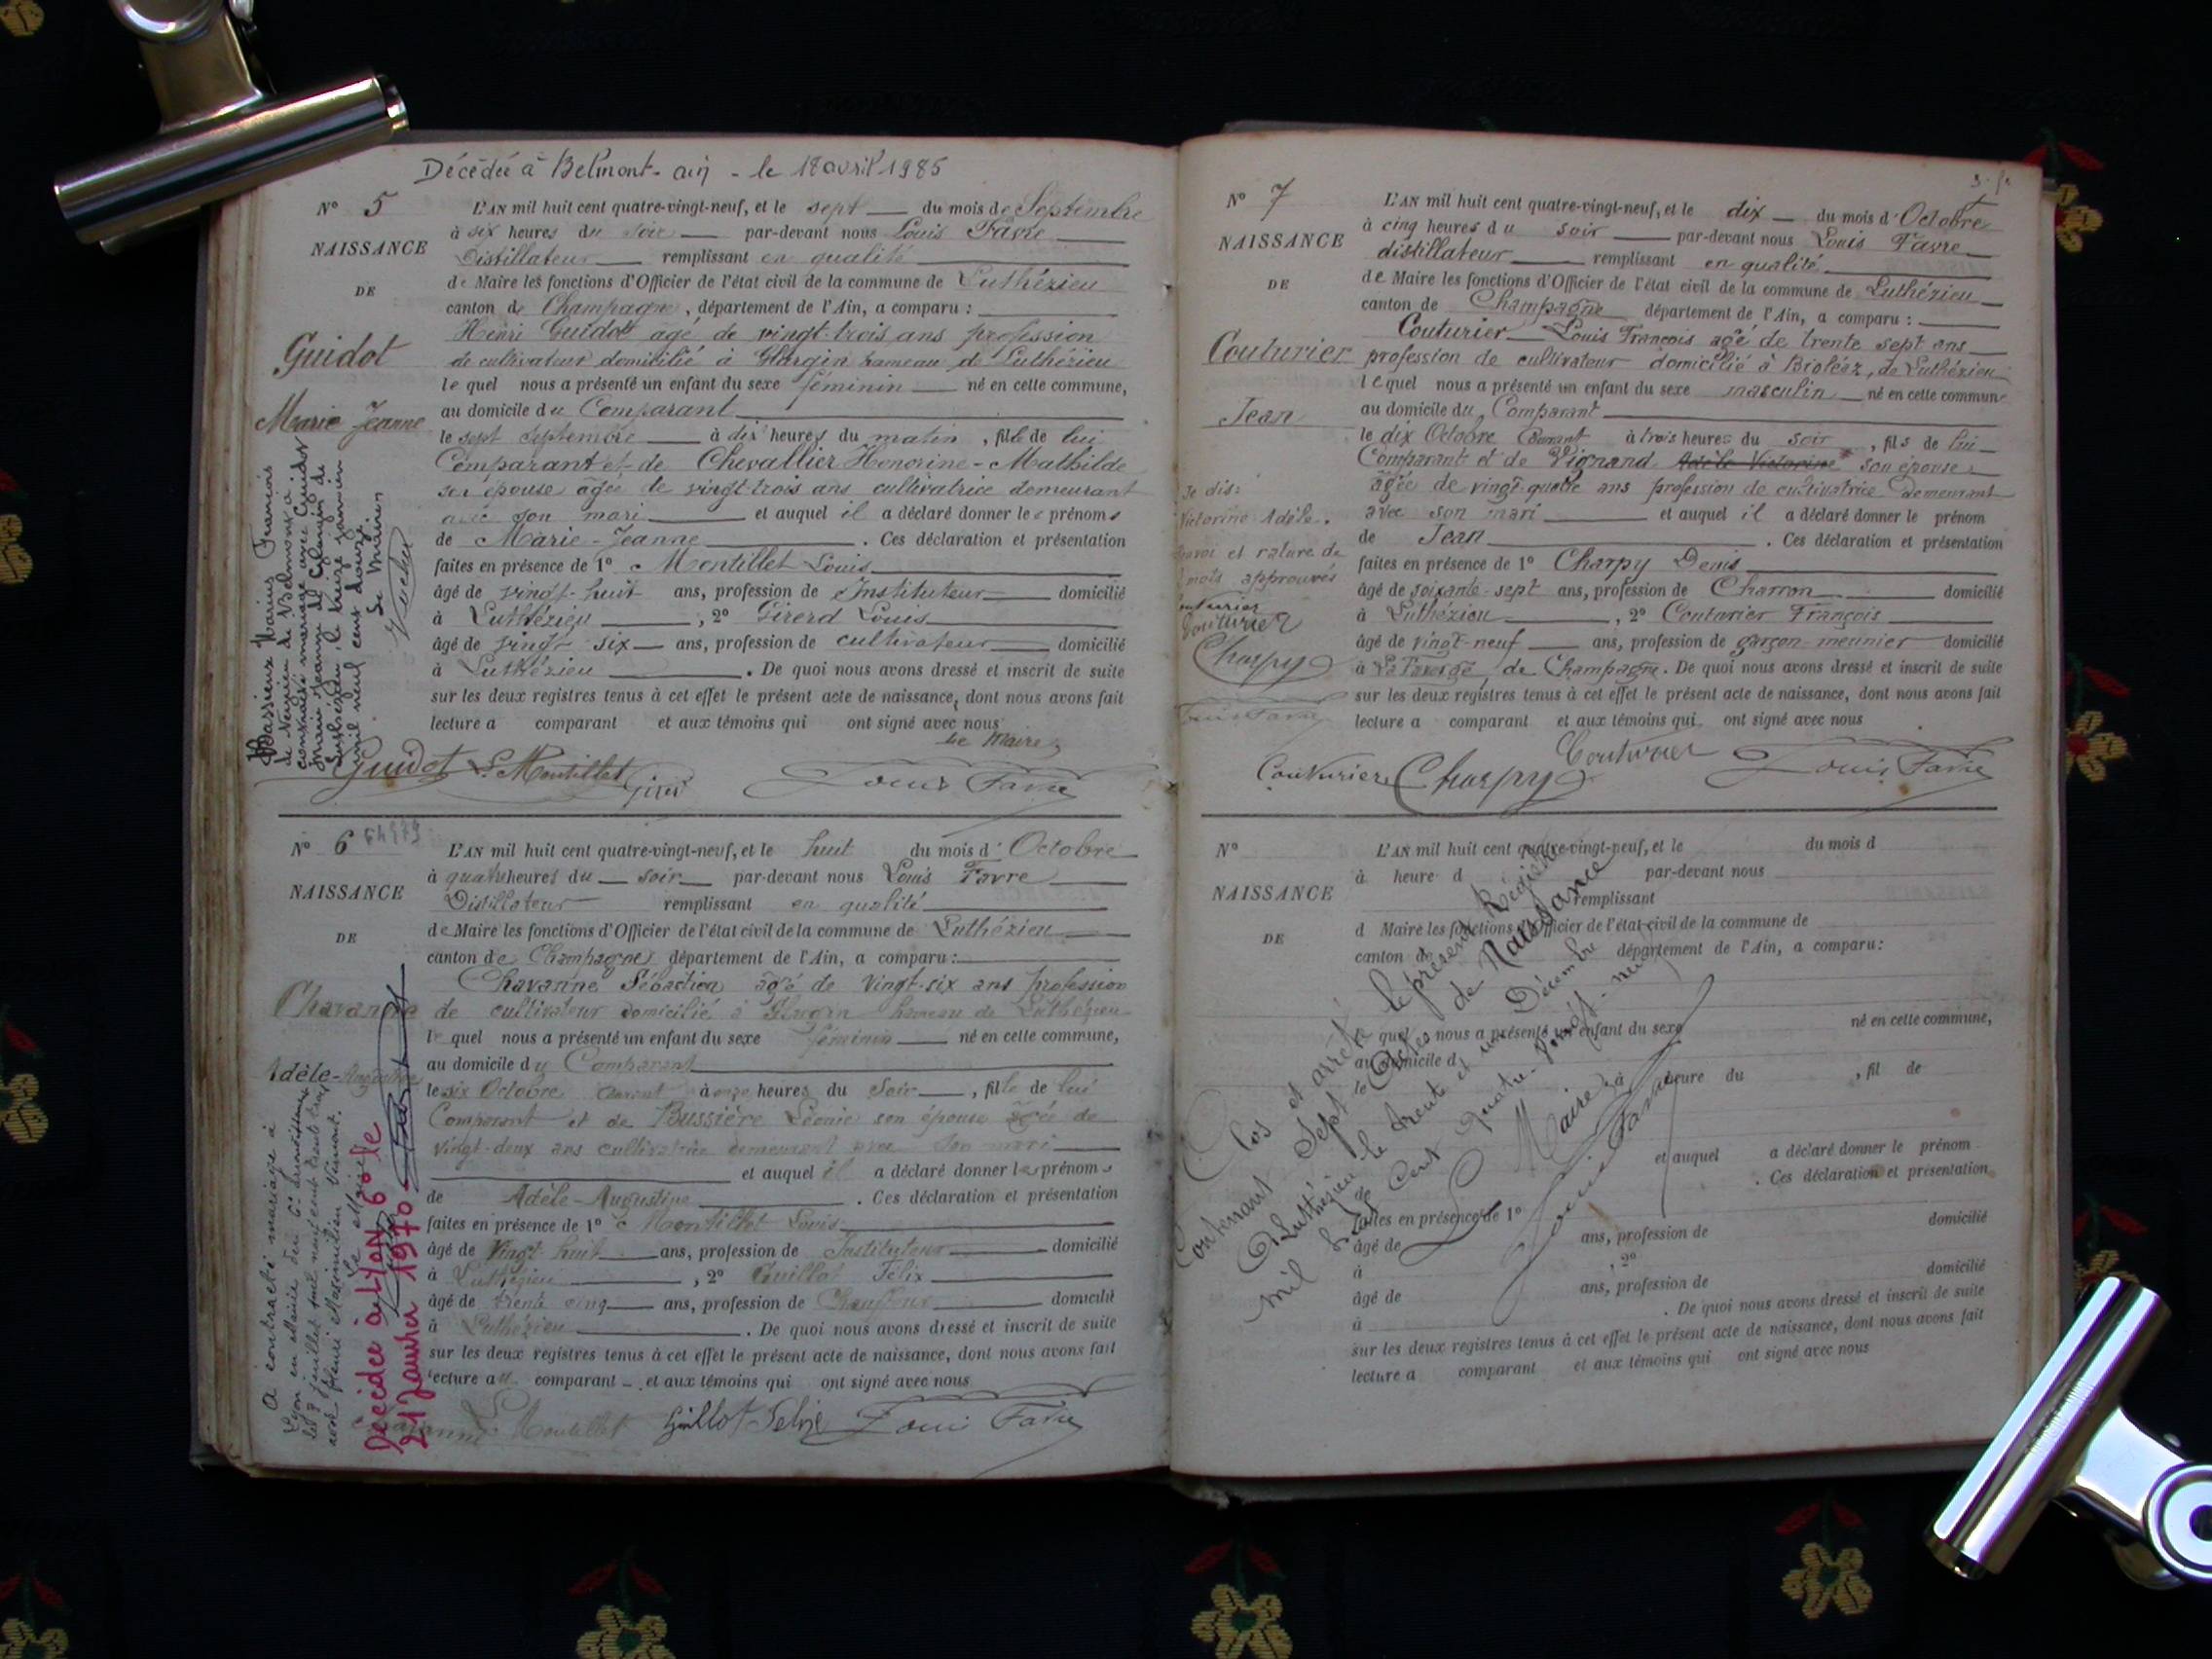 Décédée à Belmont-ain - le 18 avril 1985
N° 5
NAISSANCE
DE
Guidot
Marie Jeanne
L'AN mil huit cent quatre-vingt-neuf, et le sept du mois de Septembre
à six heures du soir par-devant nous Louis Favre
Distillateur remplissant en qualité
de Maire les fonctions d'Officier de l'état civil de la commune de Luthézieu
canton de Champagne, département de l'Ain, a comparu :
Henri Guidot agé de vingt-trois ans profession
de cultivateur domicilié à hameau de Luthézieu
lequel nous a présenté un enfant du sexe féminin né en cette commune,
au domicile du Comparant
le sept septembre à dix heures du matin, fille de lui
Comparant et de Chevallier Honorine-Mathilde
son épouse âgée de vingt-trois ans cultivatrice demeurant
avec son mari et auquel il a déclaré donner les prénoms
de Marie-Jeanne. Ces déclaration et présentation
faites en présence de 1° Montillet Louis
âgé de vingt-huit ans, profession de Instituteur domicilié
à Luthézieu, 2° Girerd Louis
âgé de vingt six ans, profession de cultivateur domicilié
à Luthézieu. De quoi nous avons dressé et inscrit de suite
sur les deux registres tenus à cet effet le présent acte de naissance, dont nous avons fait
lecture a comparant et aux témoins qui ont signé avec nous
Le Maire
Guidot L. Montillet Louis Favre
Marius François
à Belmont a
contracté mariage avec Guidot
marie jeanne
Luthézieu, le treize janvier
mil neuf cent douze
Le Maire
N° 6
NAISSANCE
DE
Chavanne
Adèle-Augustine
L'AN mil huit cent quatre-vingt-neuf, et le huit du mois d'Octobre
à quatre heures du soir par-devant nous Louis Favre
Distillateur remplissant en qualité
de Maire les fonctions d'Officier de l'état civil de la commune de Luthézieu
canton de Champagne, département de l'Ain, a comparu :
Chavanne Sébastien âgé de vingt-six ans profession
de cultivateur domicilié à hameau de Luthézieu
lequel nous a présenté un enfant du sexe féminin né en cette commune,
au domicile du Comparant
le six Octobre courant à onze heures du soir, fille de lui
Comparant et de Bussière Léonie son épouse âgée de
vingt-deux ans cultivatrice demeurant avec son mari
et auquel il a déclaré donner les prénoms
de Adèle-Augustine. Ces déclaration et présentation
faites en présence de 1° Montillet Louis
âgé de vingt huit ans, profession de Instituteur domicilié
à Luthézieu, 2° Guillot Félix
âgé de trente cinq ans, profession de domicilié
à Luthézieu. De quoi nous avons dressé et inscrit de suite
sur les deux registres tenus à cet effet le présent acte de naissance, dont nous avons fait
lecture au comparant et aux témoins qui ont signé avec nous
Chavanne L. Montillet Guillot Félix Louis Favre
A contracté mariage à
Lyon en mairie du 6e arrondissement
juillet mil neuf cent trente trois
avec Maximilien
Le Maire
Décédée à Lyon 6° le
21 Janvier 1970
N° 7
NAISSANCE
DE
Couturier
Jean
L'AN mil huit cent quatre-vingt-neuf, et le dix du mois d'Octobre
à cinq heures du soir par-devant nous Louis Favre
distillateur remplissant en qualité
de Maire les fonctions d'Officier de l'état civil de la commune de Luthézieu
canton de Champagne département de l'Ain, a comparu :
Couturier Louis François agé de trente sept ans
profession de cultivateur domicilié à Bioléaz, de Luthézieu
lequel nous a présenté un enfant du sexe masculin né en cette commune
au domicile du Comparant
le dix Octobre Courant à trois heures du soir, fils de lui
Comparant et de Vignand Adèle Victorine son épouse
âgée de vingt-quatre ans profession de cultivatrice demeurant
avec son mari et auquel il a déclaré donner le prénom
de Jean. Ces déclaration et présentation
faites en présence de 1° Charpy Denis
âgé de soixante-sept ans, profession de Charron domicilié
à Luthézieu, 2° Couturier François
âgé de vingt-neuf ans, profession de garçon meunier domicilié
à La Faverge, de Champagne. De quoi nous avons dressé et inscrit de suite
sur les deux registres tenus à cet effet le présent acte de naissance, dont nous avons fait
lecture a comparant et aux témoins qui ont signé avec nous
Couturier Charpy Couturier Louis Favre
Je dis:
Victorine Adèle.
Renvoi et rature de
mots approuvés
Couturier
Couturier
Charpy
Louis Favre
N°
NAISSANCE
DE
L'AN mil huit cent quatre-vingt-neuf, et le du mois d
à heure d par-devant nous
remplissant
d Maire les fonctions d'Officier de l'état civil de la commune de
canton de département de l'Ain, a comparu :
quel nous a présenté un enfant du sexe né en cette commune,
au domicile d
le à heure du , fil de
et auquel a déclaré donner le prénom
de . Ces déclaration et présentation
faites en présence de 1°
âgé de ans, profession de domicilié
à , 2°
âgé de ans, profession de domicilié
à . De quoi nous avons dressé et inscrit de suite
sur les deux registres tenus à cet effet le présent acte de naissance, dont nous avons fait
lecture a comparant et aux témoins qui ont signé avec nous
Clos et arrêté le présent Régistre
Contenant Sept Actes de Naissance
A Luthézieu le trente et un Décembre
mil huit Cent quatre-vingt-neuf
Le Maire,
Louis Favre